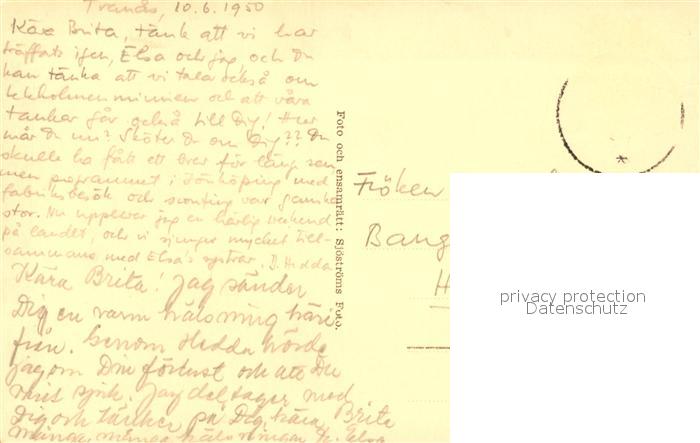 Tranås, 10.6.1950
Kära Brita, tänk att vi har
träffats igen, Elsa och jag, och Du
kan tänka att vi talar också om
Ekholmenminnen och att våra
tankar går också till Dig! Hur
mår Du nu? Sköter Du om Dig?? Du
skulle ha fått ett brev för länge sen,
men programmet i Jönköping med
fabriksbesök och scouting var ganska
stor. Nu upplever jag en härlig weekend
på landet, och vi sjunger mycket till-
sammans med Elsa's systrar. D. Hedda
Kära Brita! Jag sänder
Dig en varm hälsning här i
från. Genom Hedda hörde
jag om Din förlust och att Du
varit sjuk. Jag deltager med
Dig och tänker på Dig, kära Brita
Många, många hälsningar fr. Elsa
Foto och ensamrätt: Sjöströms Foto.
Fröken
Bang
H
privacy protection
Datenschutz